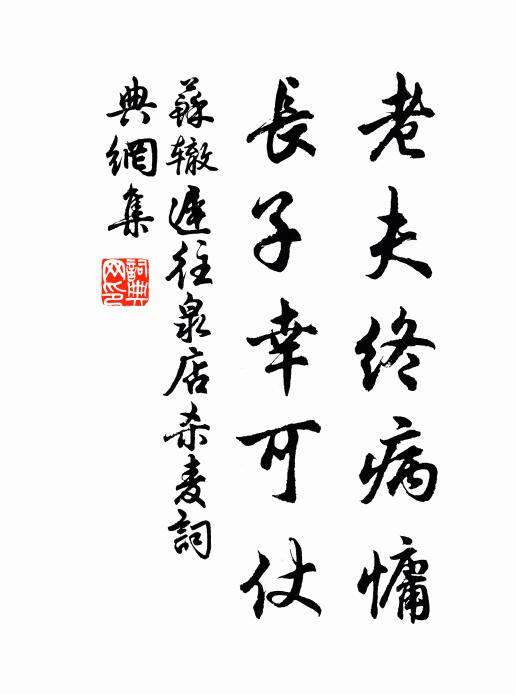 老夫终病慵
長子幸可仗
蘇辙遲往泉店杀麦詞
典網集
詞典
网印